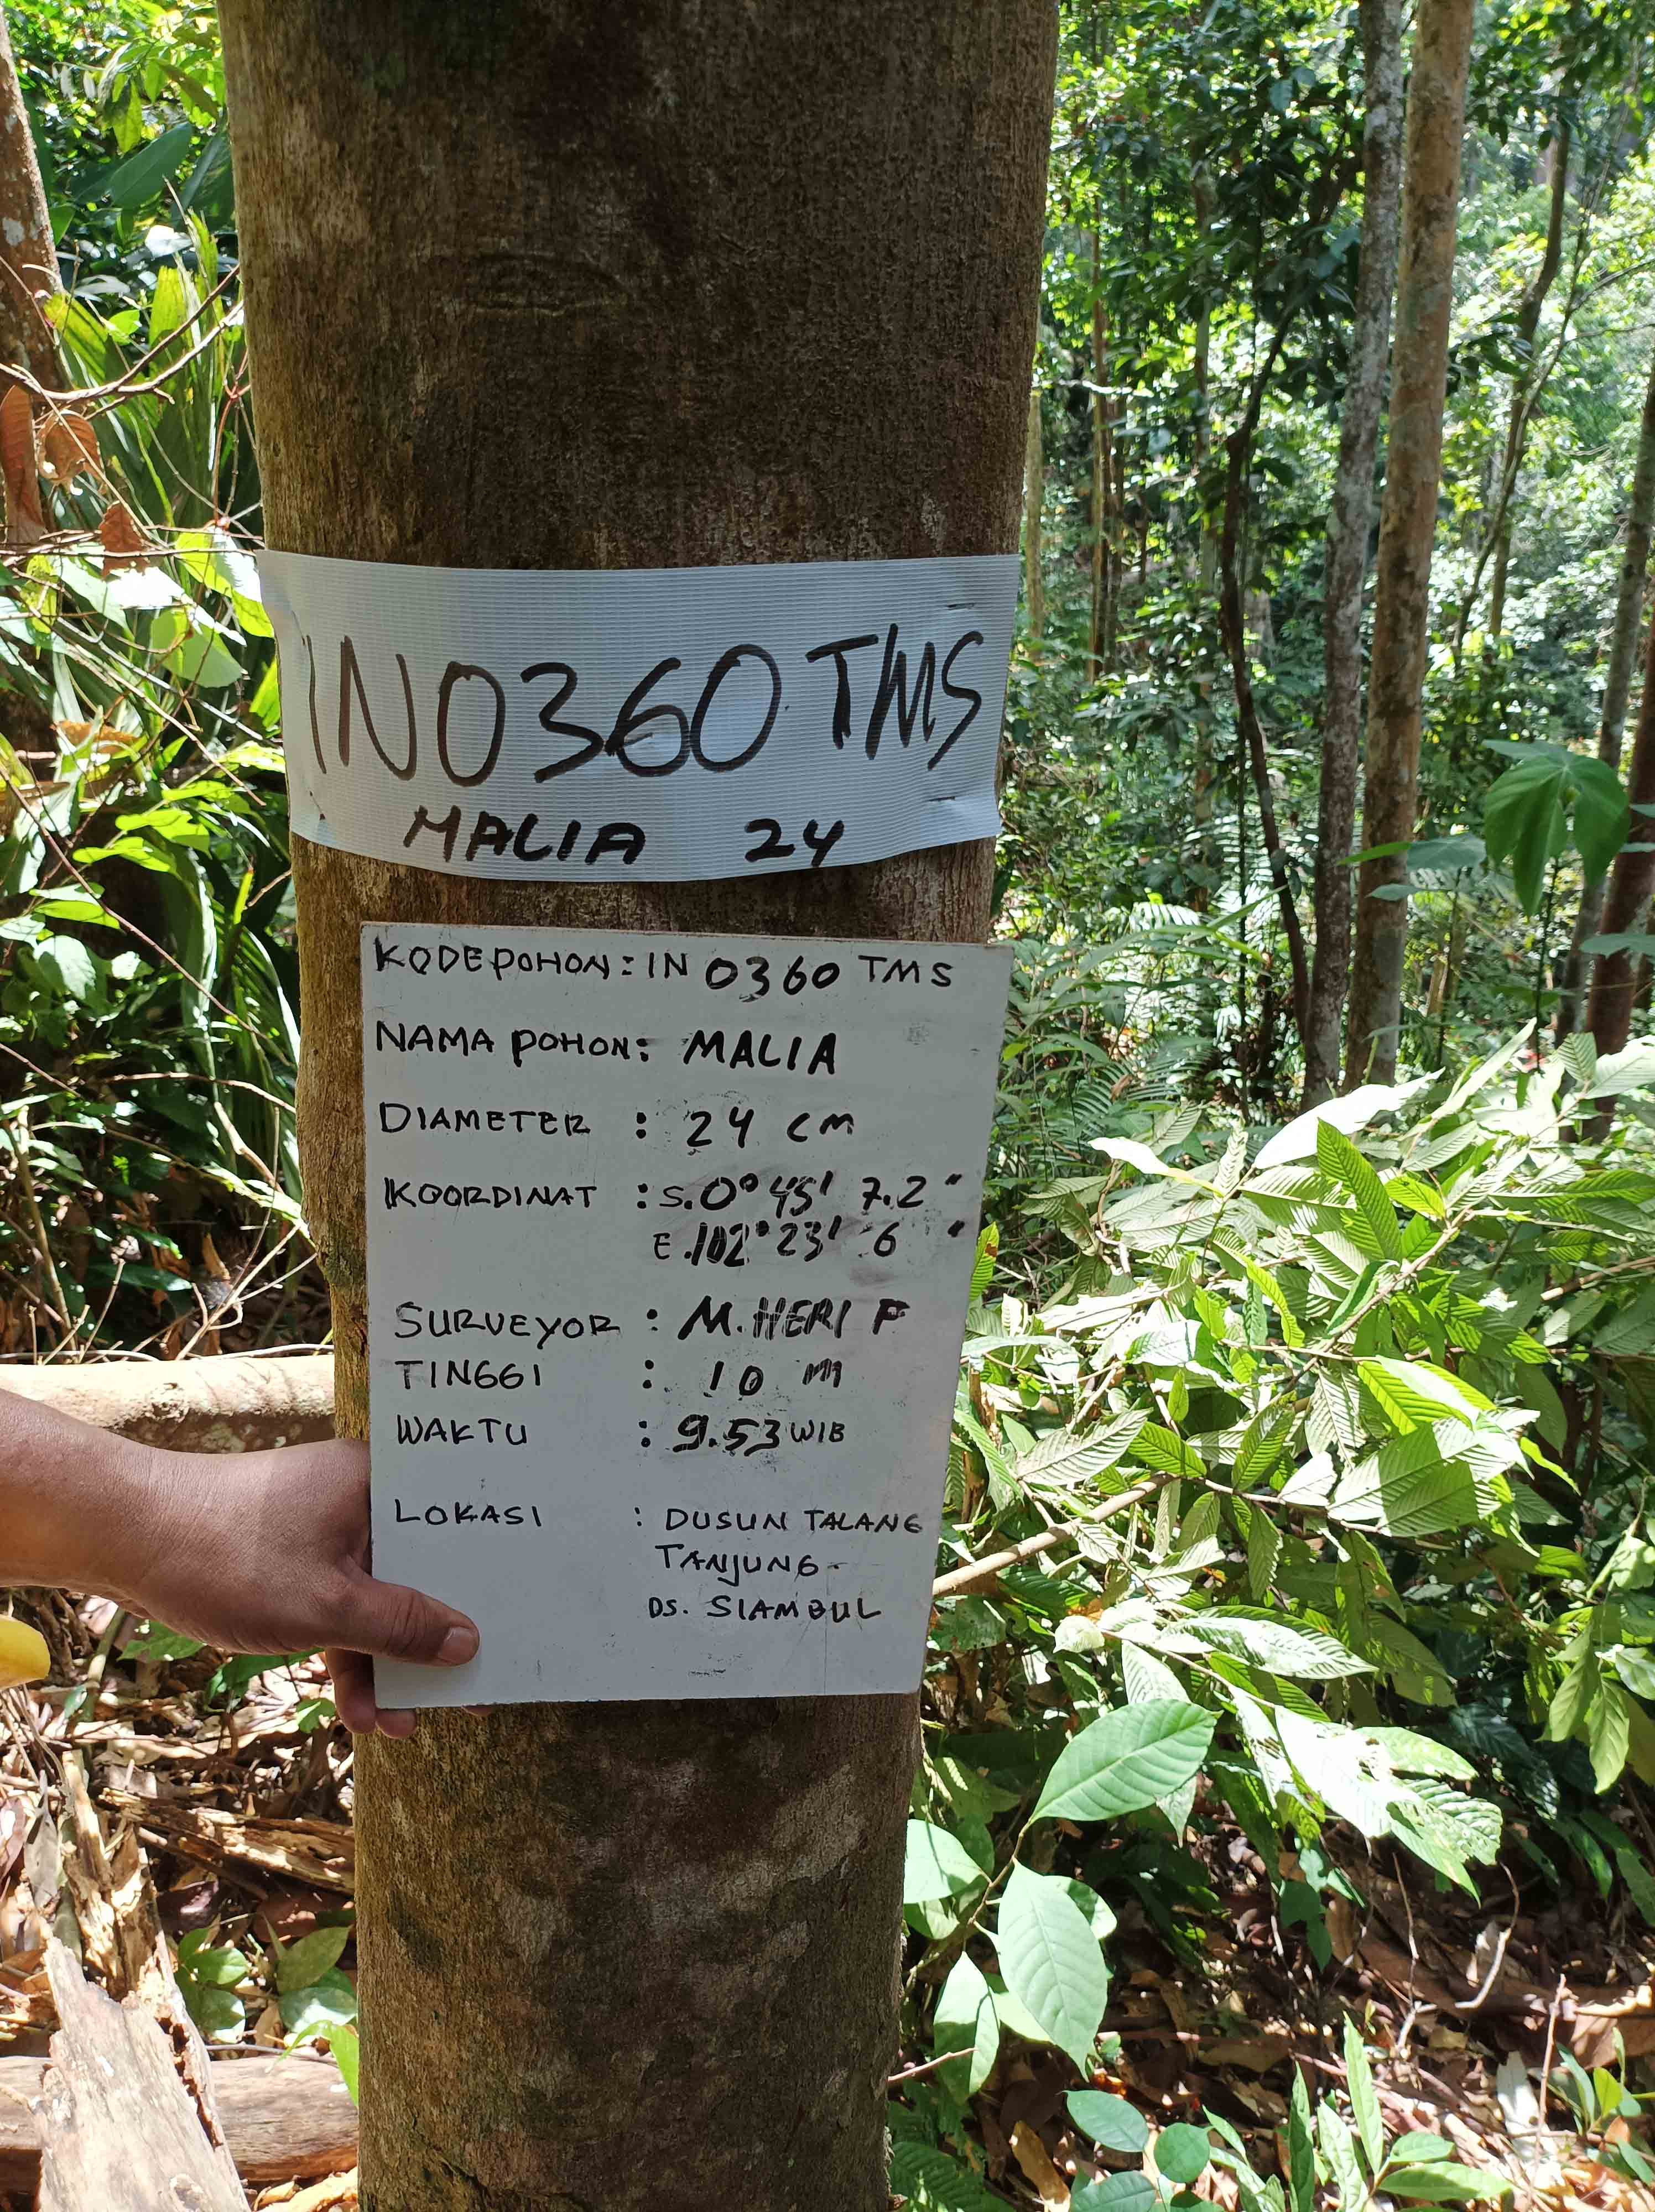 IN0360 TMS
MALIA 24
KODE POHON : IN 0360 TMS
NAMA POHON : MALIA
DIAMETER : 24 cm
KOORDINAT : S.0° 45' 7.2"
E.102° 23' 6 "
SURVEYOR : M.HERI F
TINGGI : 10 m
WAKTU : 9.53 WIB
LOKASI : DUSUN TALANG
TANJUNG-
DS. SIAMBUL